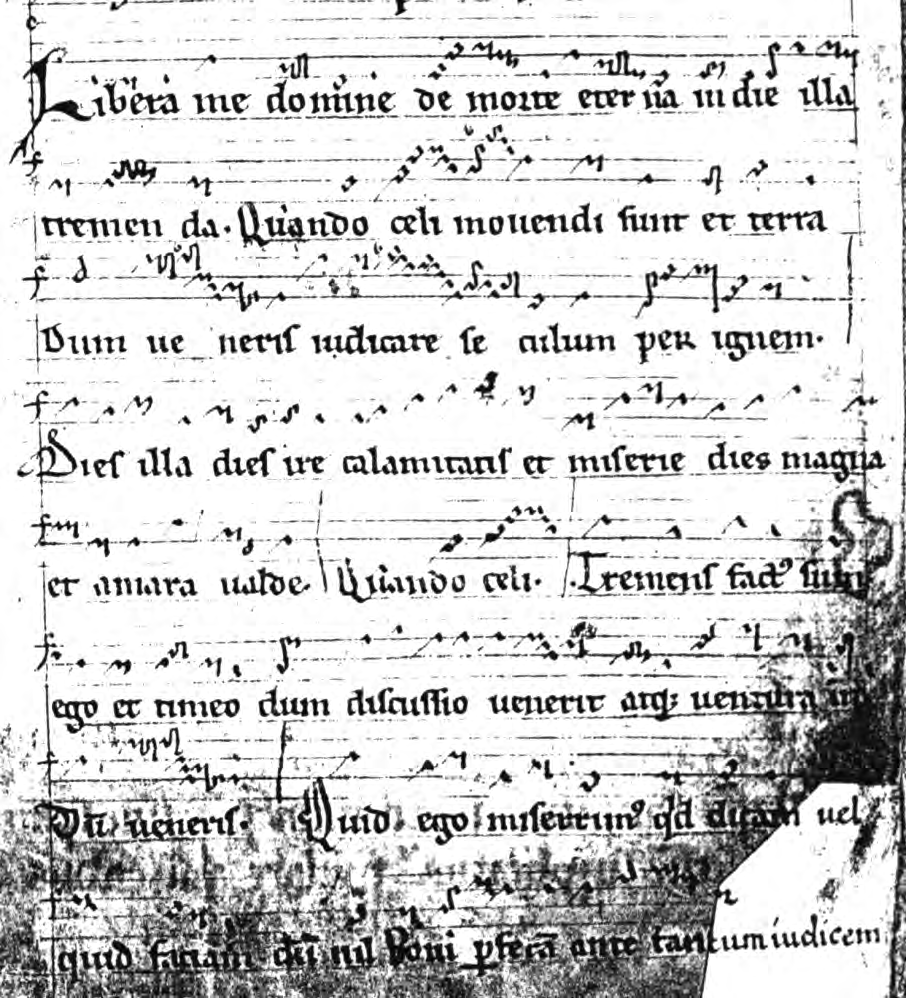 Libera me domine de morte eterna in die illa
tremenda. Quando celi mouendi sunt et terra
Dum ueneris iudicare seculum per ignem.
Dies illa dies ire calamitatis et miserie dies magna
et amara ualde. Quando celi. Tremens fact⁹ sum
ego et timeo dum discussio uenerit atq; uentura
Dū ueneris. Quid ego miserrim⁹ qd dicam uel
quid faciam dū nil boni pferā ante tantum iudicem